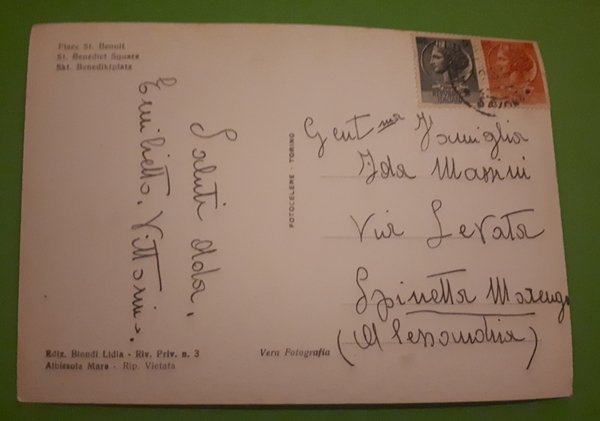 Place St. Benoit
St. Benedict Square
Skt. Benediktplatz
Saluti Alda,
Emilietta, Vittorino.
FOTOCELERE - TORINO
Gent.ma Famiglia
Ida Massini
Via Levata
Spinetta Marengo
(Alessandria)
Ediz. Biondi Lidia - Riv. Priv. n. 3
Albissola Mare - Rip. Vietata
Vera Fotografia